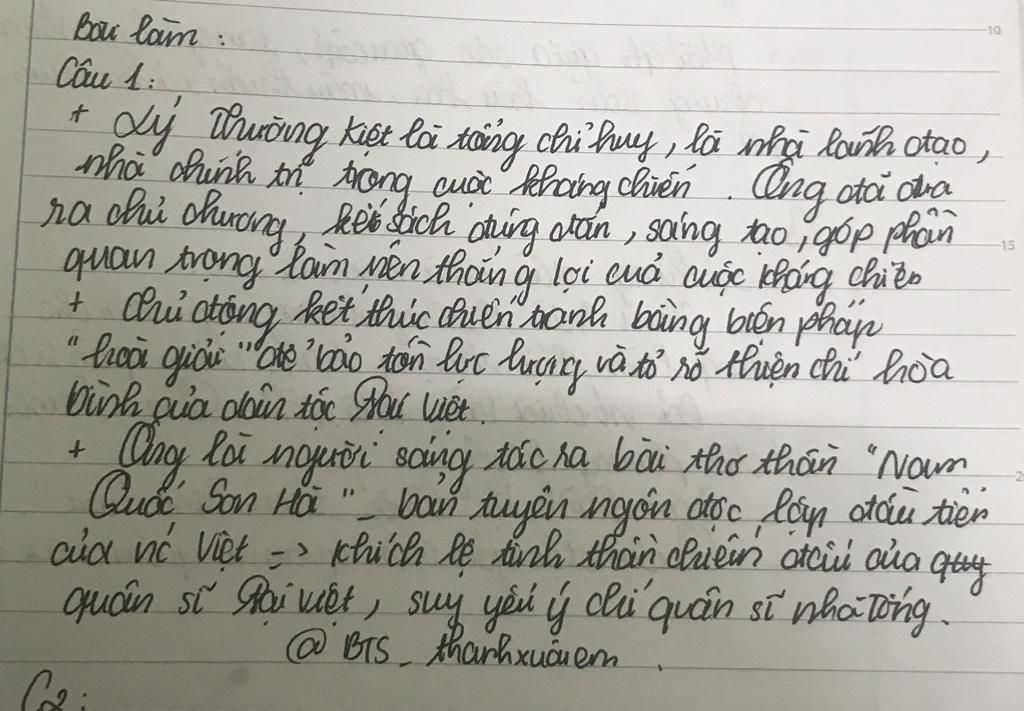 Bài làm :
Câu 1:
+ Lý Thường Kiệt là tổng chỉ huy, là nhà lãnh đạo,
nhà chính trị trong cuộc kháng chiến. Ông đã đưa
ra chủ chương, kế sách đúng đắn, sáng tạo, góp phần
quan trọng làm nên thắng lợi của cuộc kháng chiến
+ Chủ động kết thúc chiến tranh bằng biện pháp
"hoà giải" để bảo tồn lực lượng và tỏ rõ thiện chí hòa
bình của dân tộc Đại Việt.
+ Ông là người sáng tác ra bài thơ thần "Nam
Quốc Sơn Hà" - bản tuyên ngôn độc lập đầu tiên
của nc Việt => khích lệ tinh thần chiến đấu của quy
quân sĩ Đại Việt, suy yếu ý chí quân sĩ nhà Tống.
@ BTS_thanhxuânem.
C2:
10
15
2